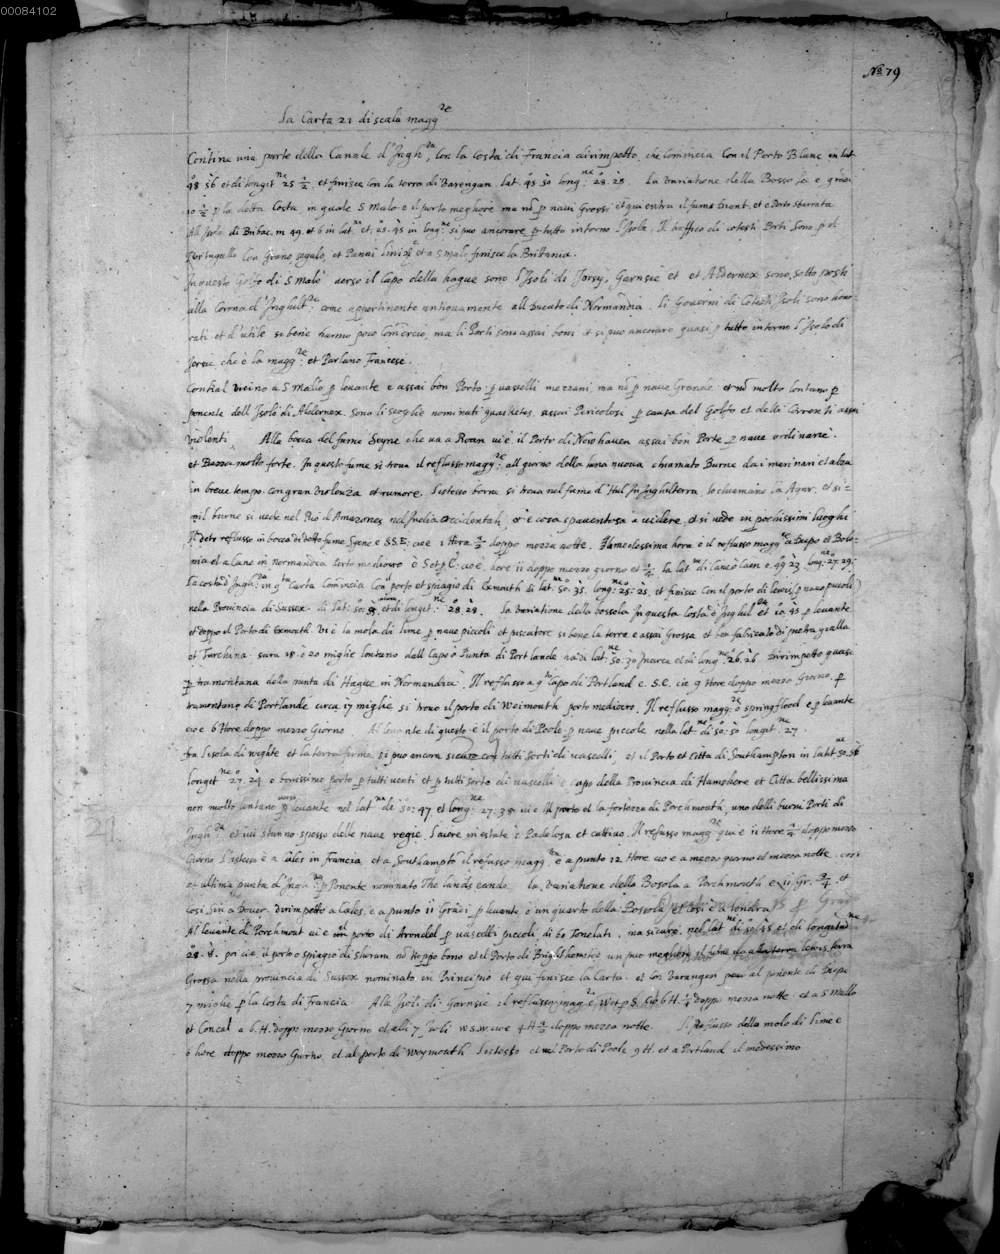 00084102
No 79
La Carta 21ª di scala magg.re
Contine una parte della Canale d'Ingh.ra, con la costa di Francia dirimpetto, che Commincia Con il Porto Blanc in lat.
48 56 et di longit.ne 25 1/2, et finisce con la terra di Barengan. lat. 49 50 long.ne 28. 28. La Variatione della Bossola e gradi
10 1/2 p la detta Costa, in quale S Malo e il porto meghore ma nō p navi Grossi et qui entra il fiume
All Isola di Bribac. in 49. et 6 in lat.ne et, 25. 45 in long.ne si puo ancorare p tutto intorno l'Isola. Il traffico di cotesti Porti sono p il
Portugallo con Grano, segalo, et Panni et a S malo finisce la Brittania.
In questo Golfo di S Malo verso il Capo della hague sono l'Isoli di Jarsy, Garnsie et et Aldernex sono sotto posti
alla Corona d'Inghilt.ra come appertinente antiquamente all Ducato di Normandia. li Governi di Cotesti Isoli sono hono-
rati et d'utile se bene hanno poco Comercio, ma li Porti sono assai boni et si puo ancorare quasi p tutto intorno l'Isola di
Jersie che è la magg.re et Parlano Francese.
Conkal vicino a S Malie p levante e assai bon Porto p vasselli mezzani, ma nō p nave Grande et nō molto lontano p
ponente dell Isola di Aldernex sono li scoglie nominati quasketes, assai Pericolosi p causa del Golfo et delli Correnti assai
violenti. Alla bocca del fiume Seyne che va a Roan vi è il Porto di Newhaven assai bon Porte p nave ordinarie.
et Bazza molto forte. In questo fiume si trova il reflusso magg.re all giorno della luna nuova chiamato Burne da i marinari et alza
in breve tempo con gran violenza et rumore. l'istesso borne si trova nel fiume d'Hul in Inghilterra, lo chiamano la Agar. et si-
mil burne si vede nel Rio d Amazones nel India occidentali, et è cosa spaventosa a videre et si vede in pochissimi luoghi
Il detto reflusso in bocca di detto fiume Syene e S.S.E: cioe 1 Hora 1/2 doppo mezza notte. l'Istessima hora è il reflusso magg.re a Diepo et Bolo-
nia et a Cane in Normandia porto mediocro è S et p E: cioè hore 11 doppo mezzo giorno et 1/4. la lat.ne di Cane o Caen e. 49 23 long.ne 27. 29.
La costa d'Ingh.ra in q.ta Carta Comincia con il porto et spiagio di Exmouth di lat.ne 50. 35. long.ne 25: 25, et finisce con il porto di lewis (p navo piccoli)
nella Provincia di Sussex di lat: 50: et di longit.ne 28. 28. La Variatione della bossola in questa Costa d'Inghil.ra et 10. 45 p levante
et doppo il Porto di Exmouth vi è la mola di lime p nave piccoli et piscatore se bene la terra e assai Grossa et ben fabricato di pietra gialla
et Turchina sara 18 ò 20 miglie lontano dall Capo ò Punta di Portlande ha di lat.ne 50: 30 incirca et di long.ne 26. 26 Dirimpetto quasi
p tramontana della punta di Hague in Normandia. Il reflusso a q.to Capo di Portland e. S.E. cie 9 Hore doppo mezzo Giorno. p
tramontano di Portlande circa 17 miglie si trova il porto di Weimouth porto mediocro. Il reflusso magg.re ò springflood e p levante
cioe 6 Hore doppo mezzo Giorno. Al levante di questo è il porto di Poole p nave piccole nella lat.ne di 50: 50 longit.ne 27.
fra l'isola di wighte et la terra ferma, si puo ancora sicuro con tutti sorti di vasselli et il Porto et Citta di Southampton in latit.ne 50. 58
longit.ne 27. 24. e bonissimo porto p tutti venti et p tutti sorto di vasselli è capo della Provincia di Hamshere et Citta bellissima
non molto lontano p levante nel lat.ne di 50: 47, et long.ne 27. 38 vi è il porto et la fortezza di Porchmouth, uno delli buoni Porti di
Ingh.ra et ivi stanno spesso delle nave regie. l'aiere in estate è Padolosa et cattivo. Il refusso magg.re qui e 11 Hore 1/4 doppo mezzo
Giorno l'istesso è a Cales in Francia et a Southampto il refusso magg.re è a punto 12 Hore cio e a mezzo giorno et mezza notte. cosi
et ultima punta d'Ingh.ra p Ponente nominato The lands eande. la Variatione della Bosola a Porchmouth e 11 Gr. 3/4. et
cosi sin a Dover, dirimpetto a Cales, e a punto 11 Gradi p levante, e un quarto della Bossola, et cosi è a londra
Al levante di Porchmout vi è un porto di Arondel p vasselli piccoli di 60 Tonelati, ma sicuro. nel lat.ne di 50 48 et di longit.ne
28. 8. poi cie il porto o spiagio di Shoram nō troppo bono et il Porto di Brig.Thomsto un puo meghore il fiume va alla terra lewis terra
Grossa nella provincia di Sussex nominato in Principio et qui finisce la Carta. et con Barangen poco al ponente di Diepe
7 miglie p la costa di Francia. Alla Isoli di Garnsie il reflusso magg.re è, W et p S. cio 6 H. 1/4 doppo mezza notte et a S Mallo
et Concal a 6. H. doppo mezzo Giorno et alli 7 Isoli w.s.w. cioe 4 H 1/2 doppo mezza notte. Il Reflusso della molo di lime e
6 hore doppo mezzo Giorno, et al porto di Weymouth l'istesso et nel Porto di Poole 9 H. et a Portland il medessimo